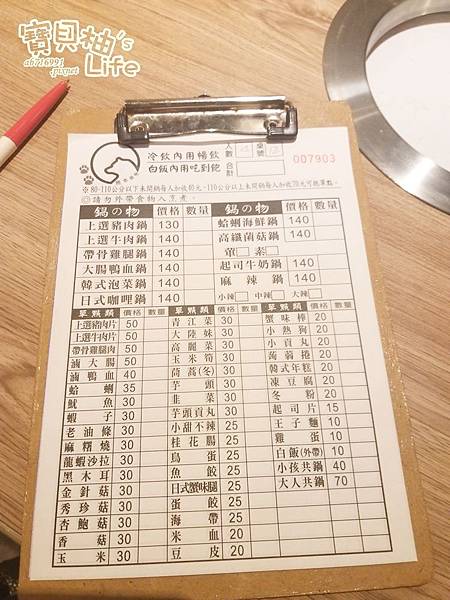 寶貝柚's Life
ab716991.pixnet
冷飲內用暢飲
白飯內用吃到飽
人數
桌號
合計
007903
※80-110公分以下未開鍋每人加收40元，110公分以上未開鍋每人加收70元可抵單點。
◎請勿外帶食物入烹煮。
鍋の物 價格 數量 鍋の物 價格 數量
上選豬肉鍋 130 蛤蜊海鮮鍋 140
上選牛肉鍋 140 高纖菌菇鍋 140
帶骨雞腿鍋 140 葷□素□
大腸鴨血鍋 140 起司牛奶鍋 140
韓式泡菜鍋 140 麻辣鍋 140
日式咖哩鍋 140 小辣□ 中辣□ 大辣□
單點類 價格 數量 單點類 價格 數量 單點類 價格 數量
上選豬肉片 50 青江菜 30 蟹味棒 20
上選牛肉片 50 大陸妹 30 小熱狗 20
帶骨雞腿肉 50 高麗菜 30 小貢丸 20
滷大腸 50 玉米筍 30 蒟蒻捲 20
滷鴨血 40 茼蒿(冬) 30 韓式年糕 20
蛤蜊 35 芋頭 30 凍豆腐 20
魷魚 30 韭菜 30 冬粉 20
蝦子 30 芋頭貢丸 30 起司片 15
老油條 30 小甜不辣 25 王子麵 10
麻糬燒 30 桂花腸 25 雞蛋 10
龍蝦沙拉 30 鳥蛋 25 白飯(外帶) 10
黑木耳 30 魚餃 25 小孩共鍋 40
金針菇 30 日式蟹味腿 25 大人共鍋 70
秀珍菇 30 蛋餃 25
杏鮑菇 30 海帶 25
香菇 30 米血 20
玉米 30 豆皮 20